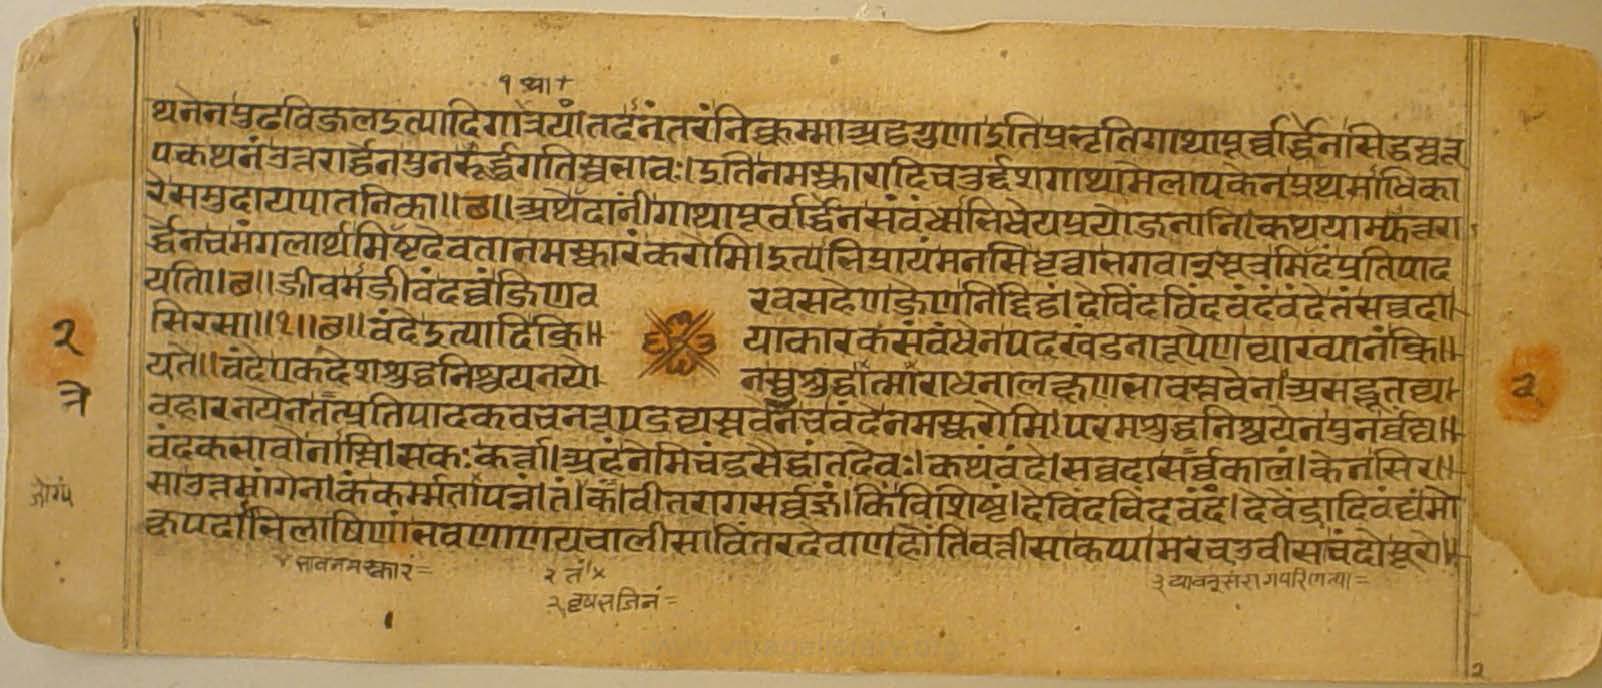 १ थ्या+
थनेनपुढविजलइत्यादिगाथात्रयं।तदनंतरंनिक्कम्माअट्ठगुणाइतिप्रभृतिगाथापूर्वार्द्धेनसिद्धस्वरू
पकथनंउत्तरार्द्धेनपुनरूर्द्ध्वगतिस्वभावः।इतिनमस्कारादिचतुर्द्दशगाथामेलापकेनप्रथमाधिका
रेसमुदायपातनिका॥छ॥अथेदानींगाथापूर्वार्द्धेनसंबंधाभिधेयप्रयोजनानि।कथयाम्युत्तरा
र्द्धेनचमंगलार्थमिष्टदेवतानमस्कारंकरोमि।इत्यभिप्रायंमनसिधृत्वाभगवान्सूत्रमिदंप्रतिपाद
यति॥छ॥जीवमजीवंदव्वंजिणव रवसहेणजेणनिद्दिट्ठं।देविंदविंदवंदंवंदेतंसव्वदा
सिरसा॥१॥छ॥वंदेइत्यादिक्रि॥ याकारकसंबंधेनपदखंडनारूपेणव्याख्यानंक्रि॥
यते॥वंदेएकदेशशुद्धनिश्चयनये। नस्वशुद्धात्माराधनालक्षणभावस्तवेन।असद्भूतव्य।
वहारनयेनतत्प्रतिपादकवचनरूपद्रव्यस्तवेनचवंदेनमस्करोमि।परमशुद्धनिश्चयेनपुनर्वंद्य॥
वंदकभावोनास्ति।सकःकर्त्ता।अहंनेमिचंद्रसैद्धांतदेवः।कथंवंदे।सव्वदासर्व्वकालं।केनसिर॥
साउत्तमांगेन।कंकर्म्मतापन्नं।तं।कं।वीतरागसर्व्वज्ञं।किंविशिष्टं।देविंदविंदवंदं।देवेंद्रादिवंद्यंमो
क्षपदाभिलाषिणां।भवणालयचालीसाविंतरदेवाणहोंतिबत्तीसाकप्पामरचउवीसाचंदोसूरो
भावनमस्कारं=
२ तं×
२ वृषभजिनं=
२